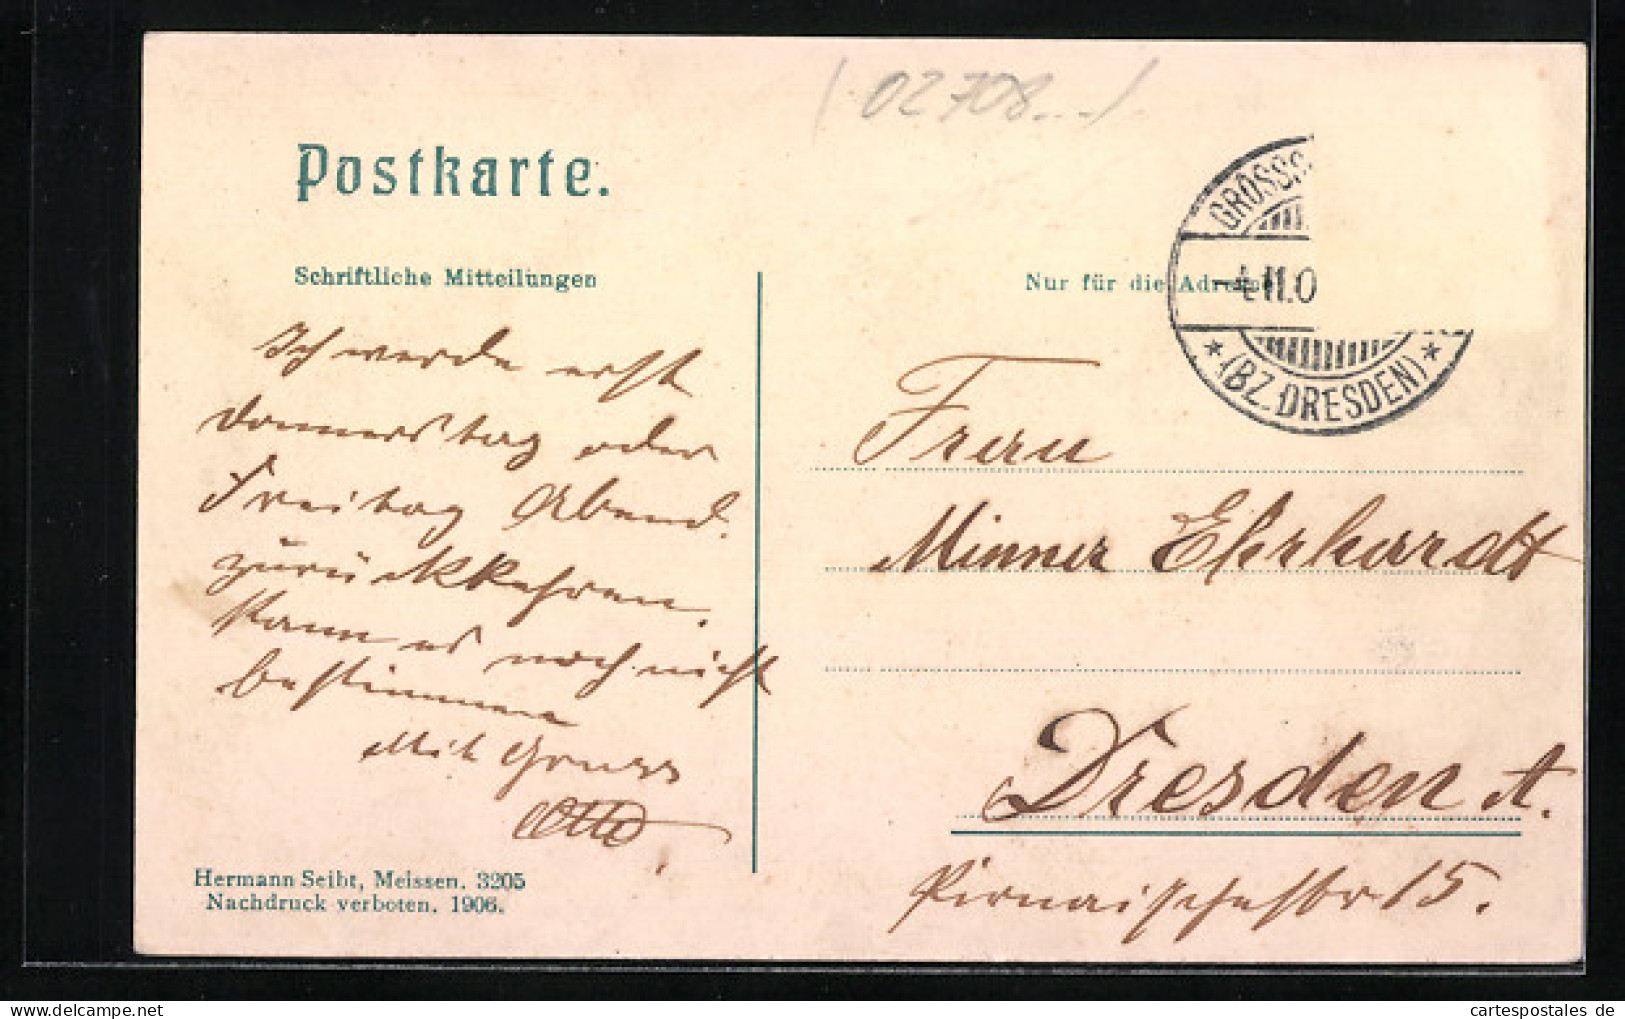 (02708...)
Postkarte.
Schriftliche Mitteilungen
Nur für die Adresse
GROSSS
4.11.0
* (BZ. DRESDEN) *
Ich werde erst
Donnerstag oder
Freitag Abend
zurückkehren.
Kann es noch nicht
bestimmen
Mit Gruss
Otto
Frau
Minna Ehrhardt
Dresden A.
Pirnaischestr 15.
Hermann Seibt, Meissen. 3205
Nachdruck verboten. 1906.
cartespostales de